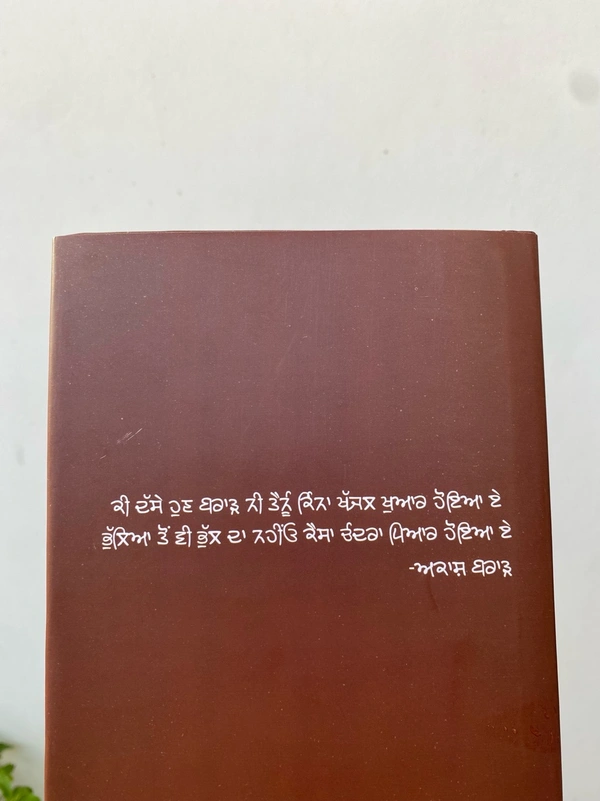 ਕੀ ਦੱਸੇ ਹੁਣ ਬਰਾੜ ਨੀ ਤੈਨੂੰ ਕਿੰਨਾ ਖੱਜਲ ਖੁਆਰ ਹੋਇਆ ਏ
ਭੁੱਲਿਆ ਤੋਂ ਵੀ ਭੁੱਲ ਦਾ ਨਹੀਂਓ ਕੈਸਾ ਚੰਦਰਾ ਪਿਆਰ ਹੋਇਆ ਏ
-ਅਕਾਸ਼ ਬਰਾੜ